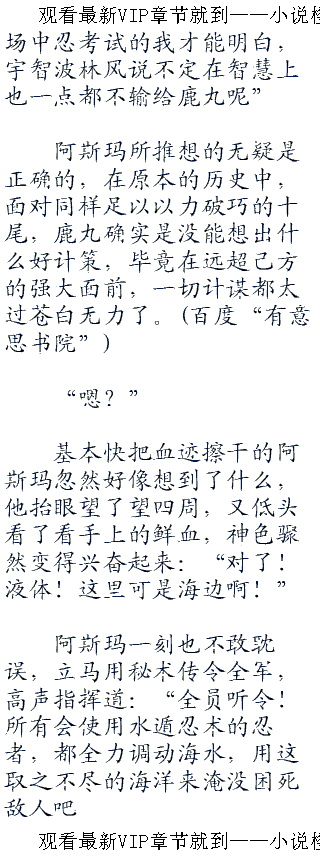 观看最新VIP章节就到——小说检
场中忍考试的我才能明白，
宇智波林风说不定在智慧上
也一点都不输给鹿九呢”
阿斯玛所推想的无疑是
正确的，在原本的历史中，
面对同样足以以力破巧的十
尾，鹿九确实是没能想出什
么好计策，毕竟在远超己方
的强大面前，一切计谋都太
过苍白无力了。(百度“有意
思书院”)
“嗯？”
基本快把血迹擦干的阿
斯玛忽然好像想到了什么，
他抬眼望了望四周，又低头
看了看手上的鲜血，神色骤
然变得兴奋起来：“对了！
液体！这里可是海边啊！”
阿斯玛一刻也不敢耽
误，立马用秘术传令全军，
高声指挥道：“全员听令！
所有会使用水遁忍术的忍
者，都全力调动海水，用这
取之不尽的海洋来淹没困死
敌人吧
观看最新VIP章节就到——小说检